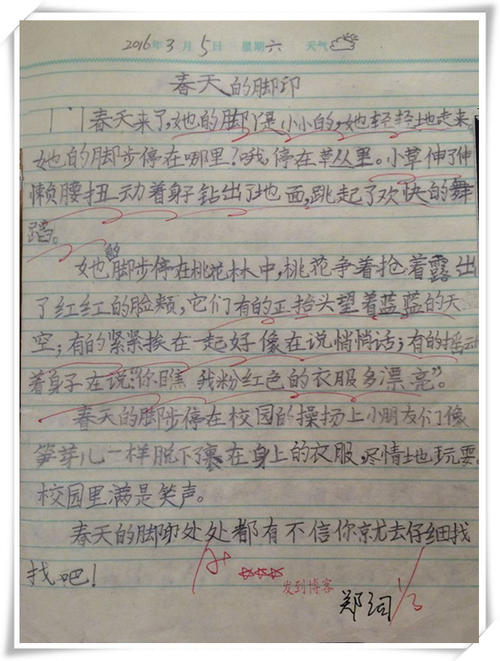 2016年3月5日 星期六 天气
春天的脚印
春天来了,她的脚印是小小的,她轻轻地走来,
她的脚步停在哪里?哦,停在草丛里。小草伸了伸
懒腰扭动着身子钻出了地面,跳起了欢快的舞
蹈。
她的脚步停在桃花林中,桃花争着抢着露出
了红红的脸颊,它们有的正抬头望着蓝蓝的天
空;有的紧紧挨在一起好像在说悄悄话;有的摇动
着身子在说“你瞧 我粉红色的衣服多漂亮”。
春天的脚步停在校园的操场上小朋友们像
笋芽儿一样脱下了裹在身上的衣服,尽情地玩耍。
校园里满是笑声。
春天的脚印处处都有不信你就去仔细找
找吧!
A+
☆☆☆
发到博客
郑